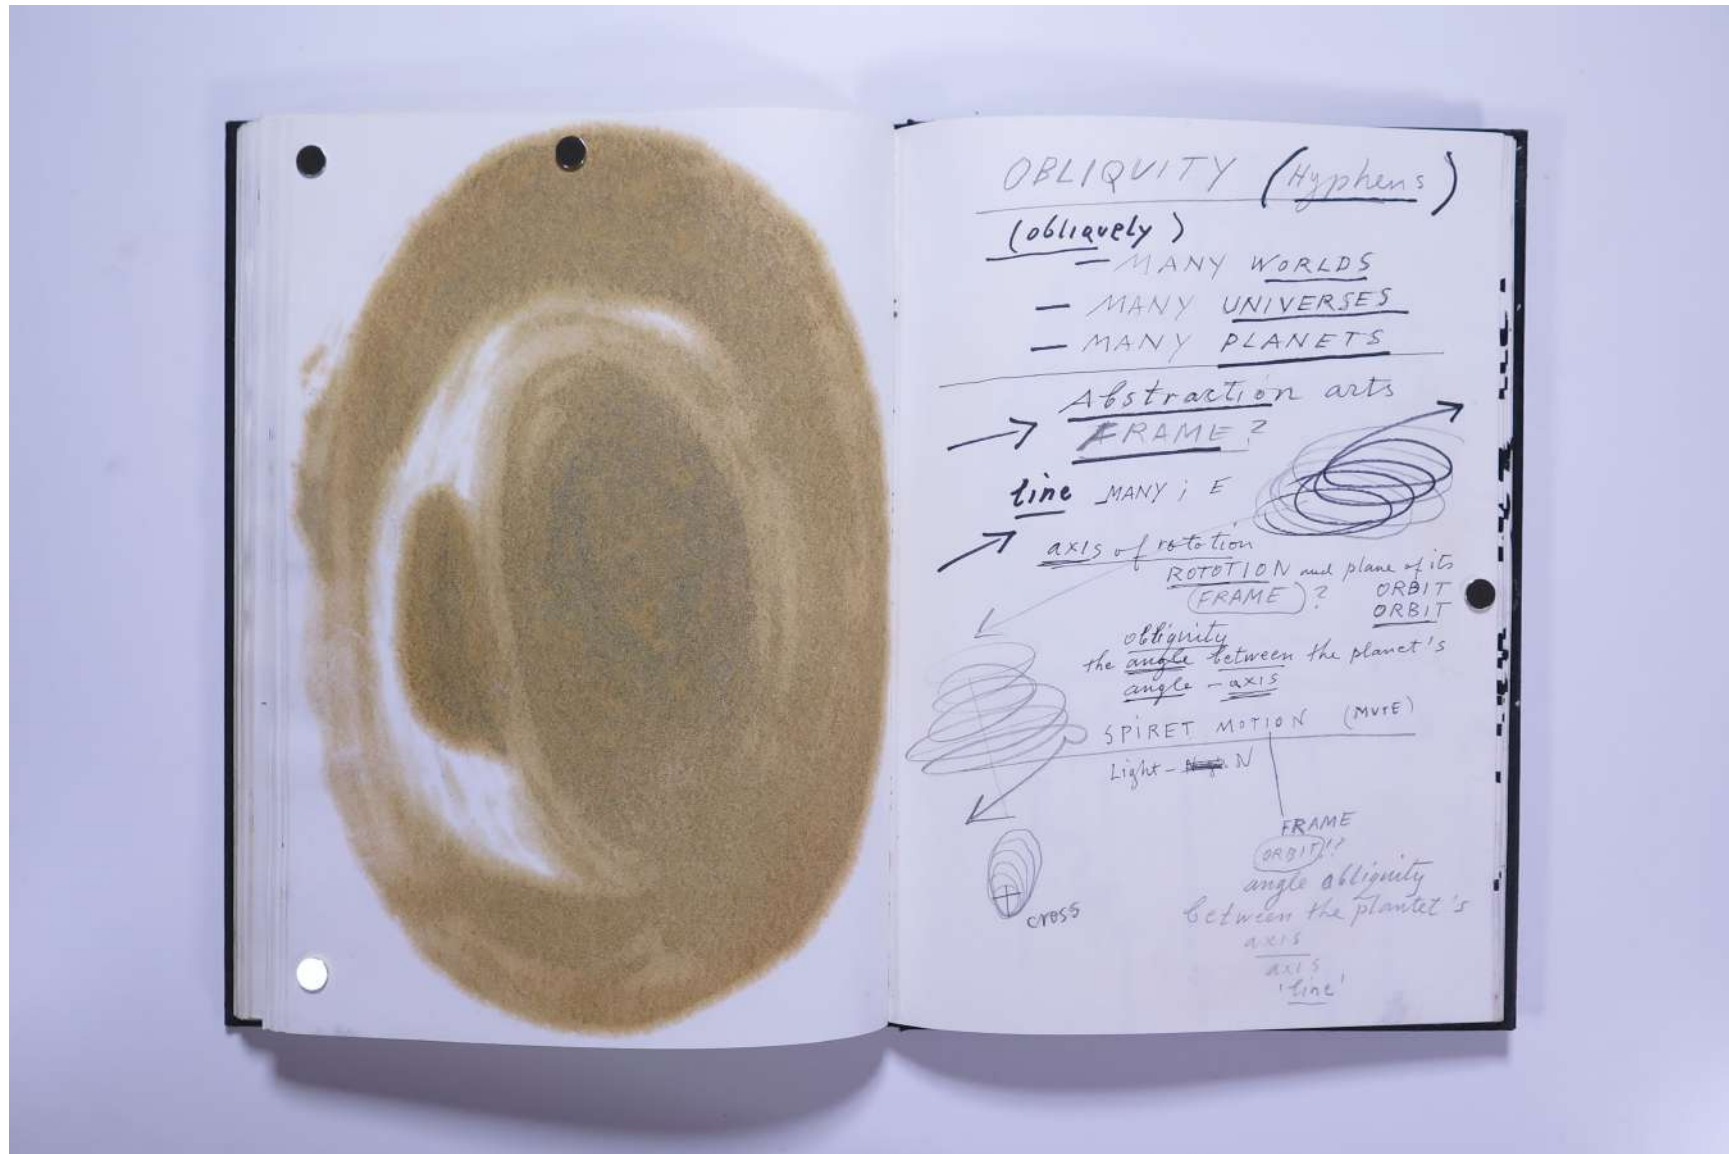 OBLIQUITY (Hyphens)
(obliquely)
– MANY WORLDS
– MANY UNIVERSES
– MANY PLANETS
Abstraction arts
FRAME?
line MANY ; E
axis of rotation
ROTOTION and plane of its
(FRAME)? ORBIT
ORBIT
obliquity
the angle between the planet's
angle – axis
SPIRET MOTION (MUTE)
Light – N
FRAME
ORBIT!?
angle obliquity
between the plantet's
axis
axis
'line'
cross